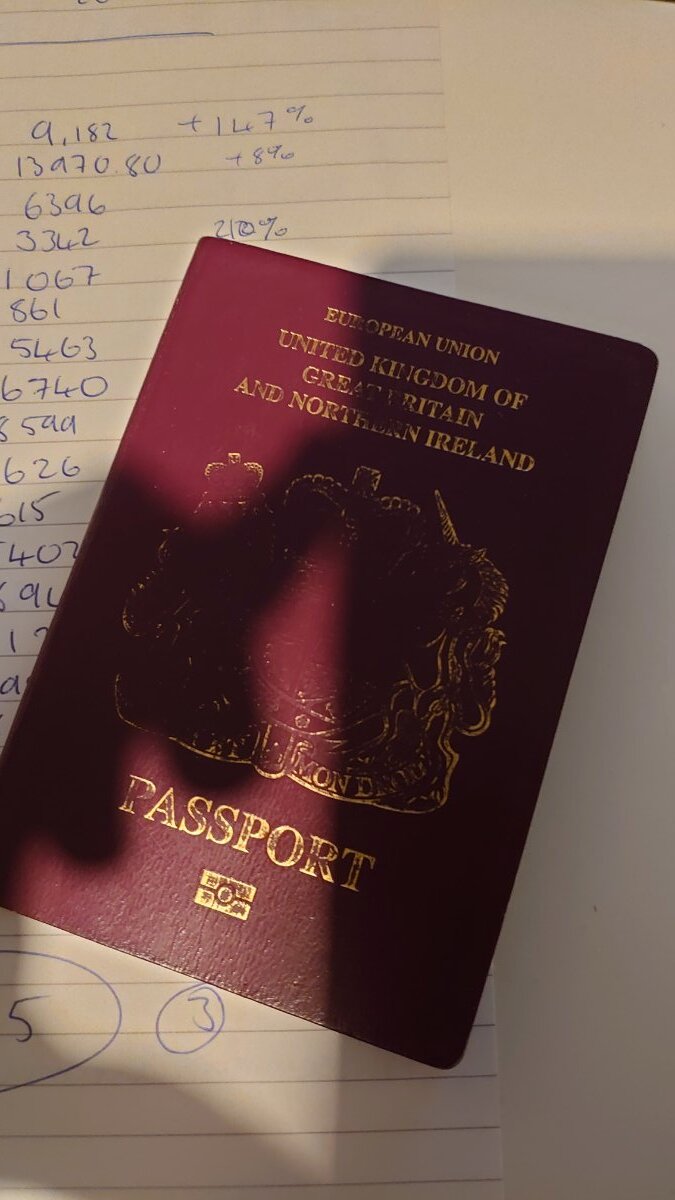 9,182 +147%
13970.80 +8%
6396
3342
1067
861
5463
6740
8599
626
615
402
EUROPEAN UNION
UNITED KINGDOM OF
GREAT BRITAIN
AND NORTHERN IRELAND
MON DROIT
PASSPORT
5
3